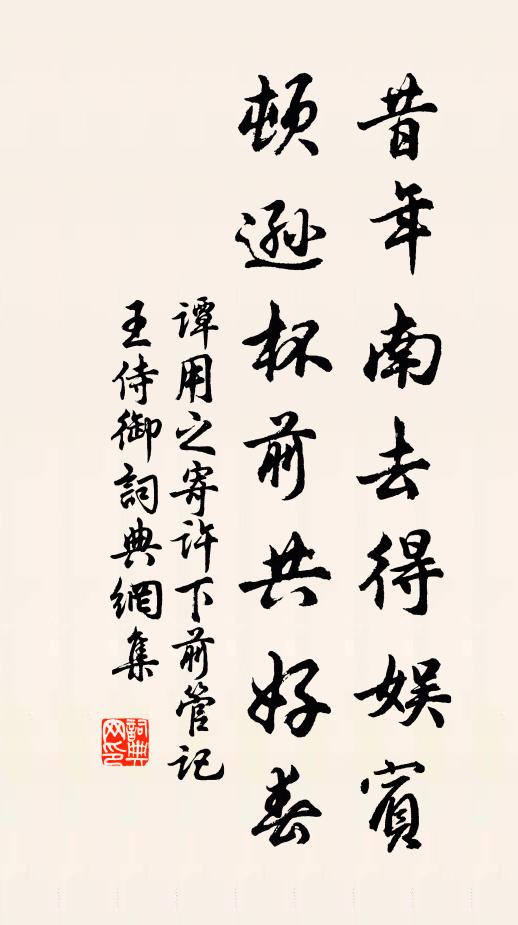 昔年南去得娱賓
頓遜杯前共好春
譚用之寄許下前管記
王侍御詞典網集
詞典
网印